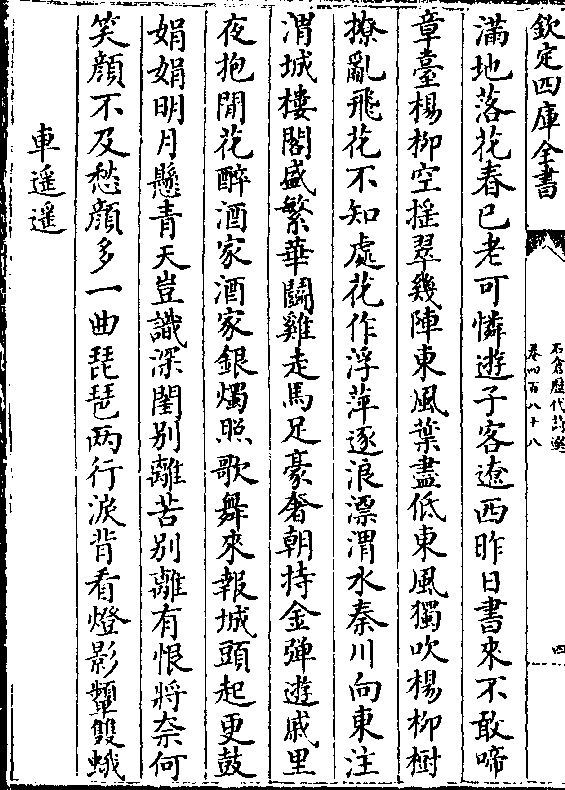 欽定四庫全書
石倉歷代詩選
卷四百八十八
四
滿地落花春已老可憐遊子客遼西昨日書來不敢啼
章臺楊柳空揺翠幾陣東風葉盡低東風獨吹楊柳樹
撩亂飛花不知處花作浮萍逐浪漂渭水秦川向東注
渭城樓閣盛繁華鬭雞走馬足豪奢朝持金彈遊戚里
夜抱閒花醉酒家酒家銀燭照歌舞來報城頭起更鼓
娟娟明月懸青天豈識深閨别離苦别離有恨將奈何
笑顔不及愁顔多一曲琵琶两行淚背看燈影顰雙蛾
車遥遥